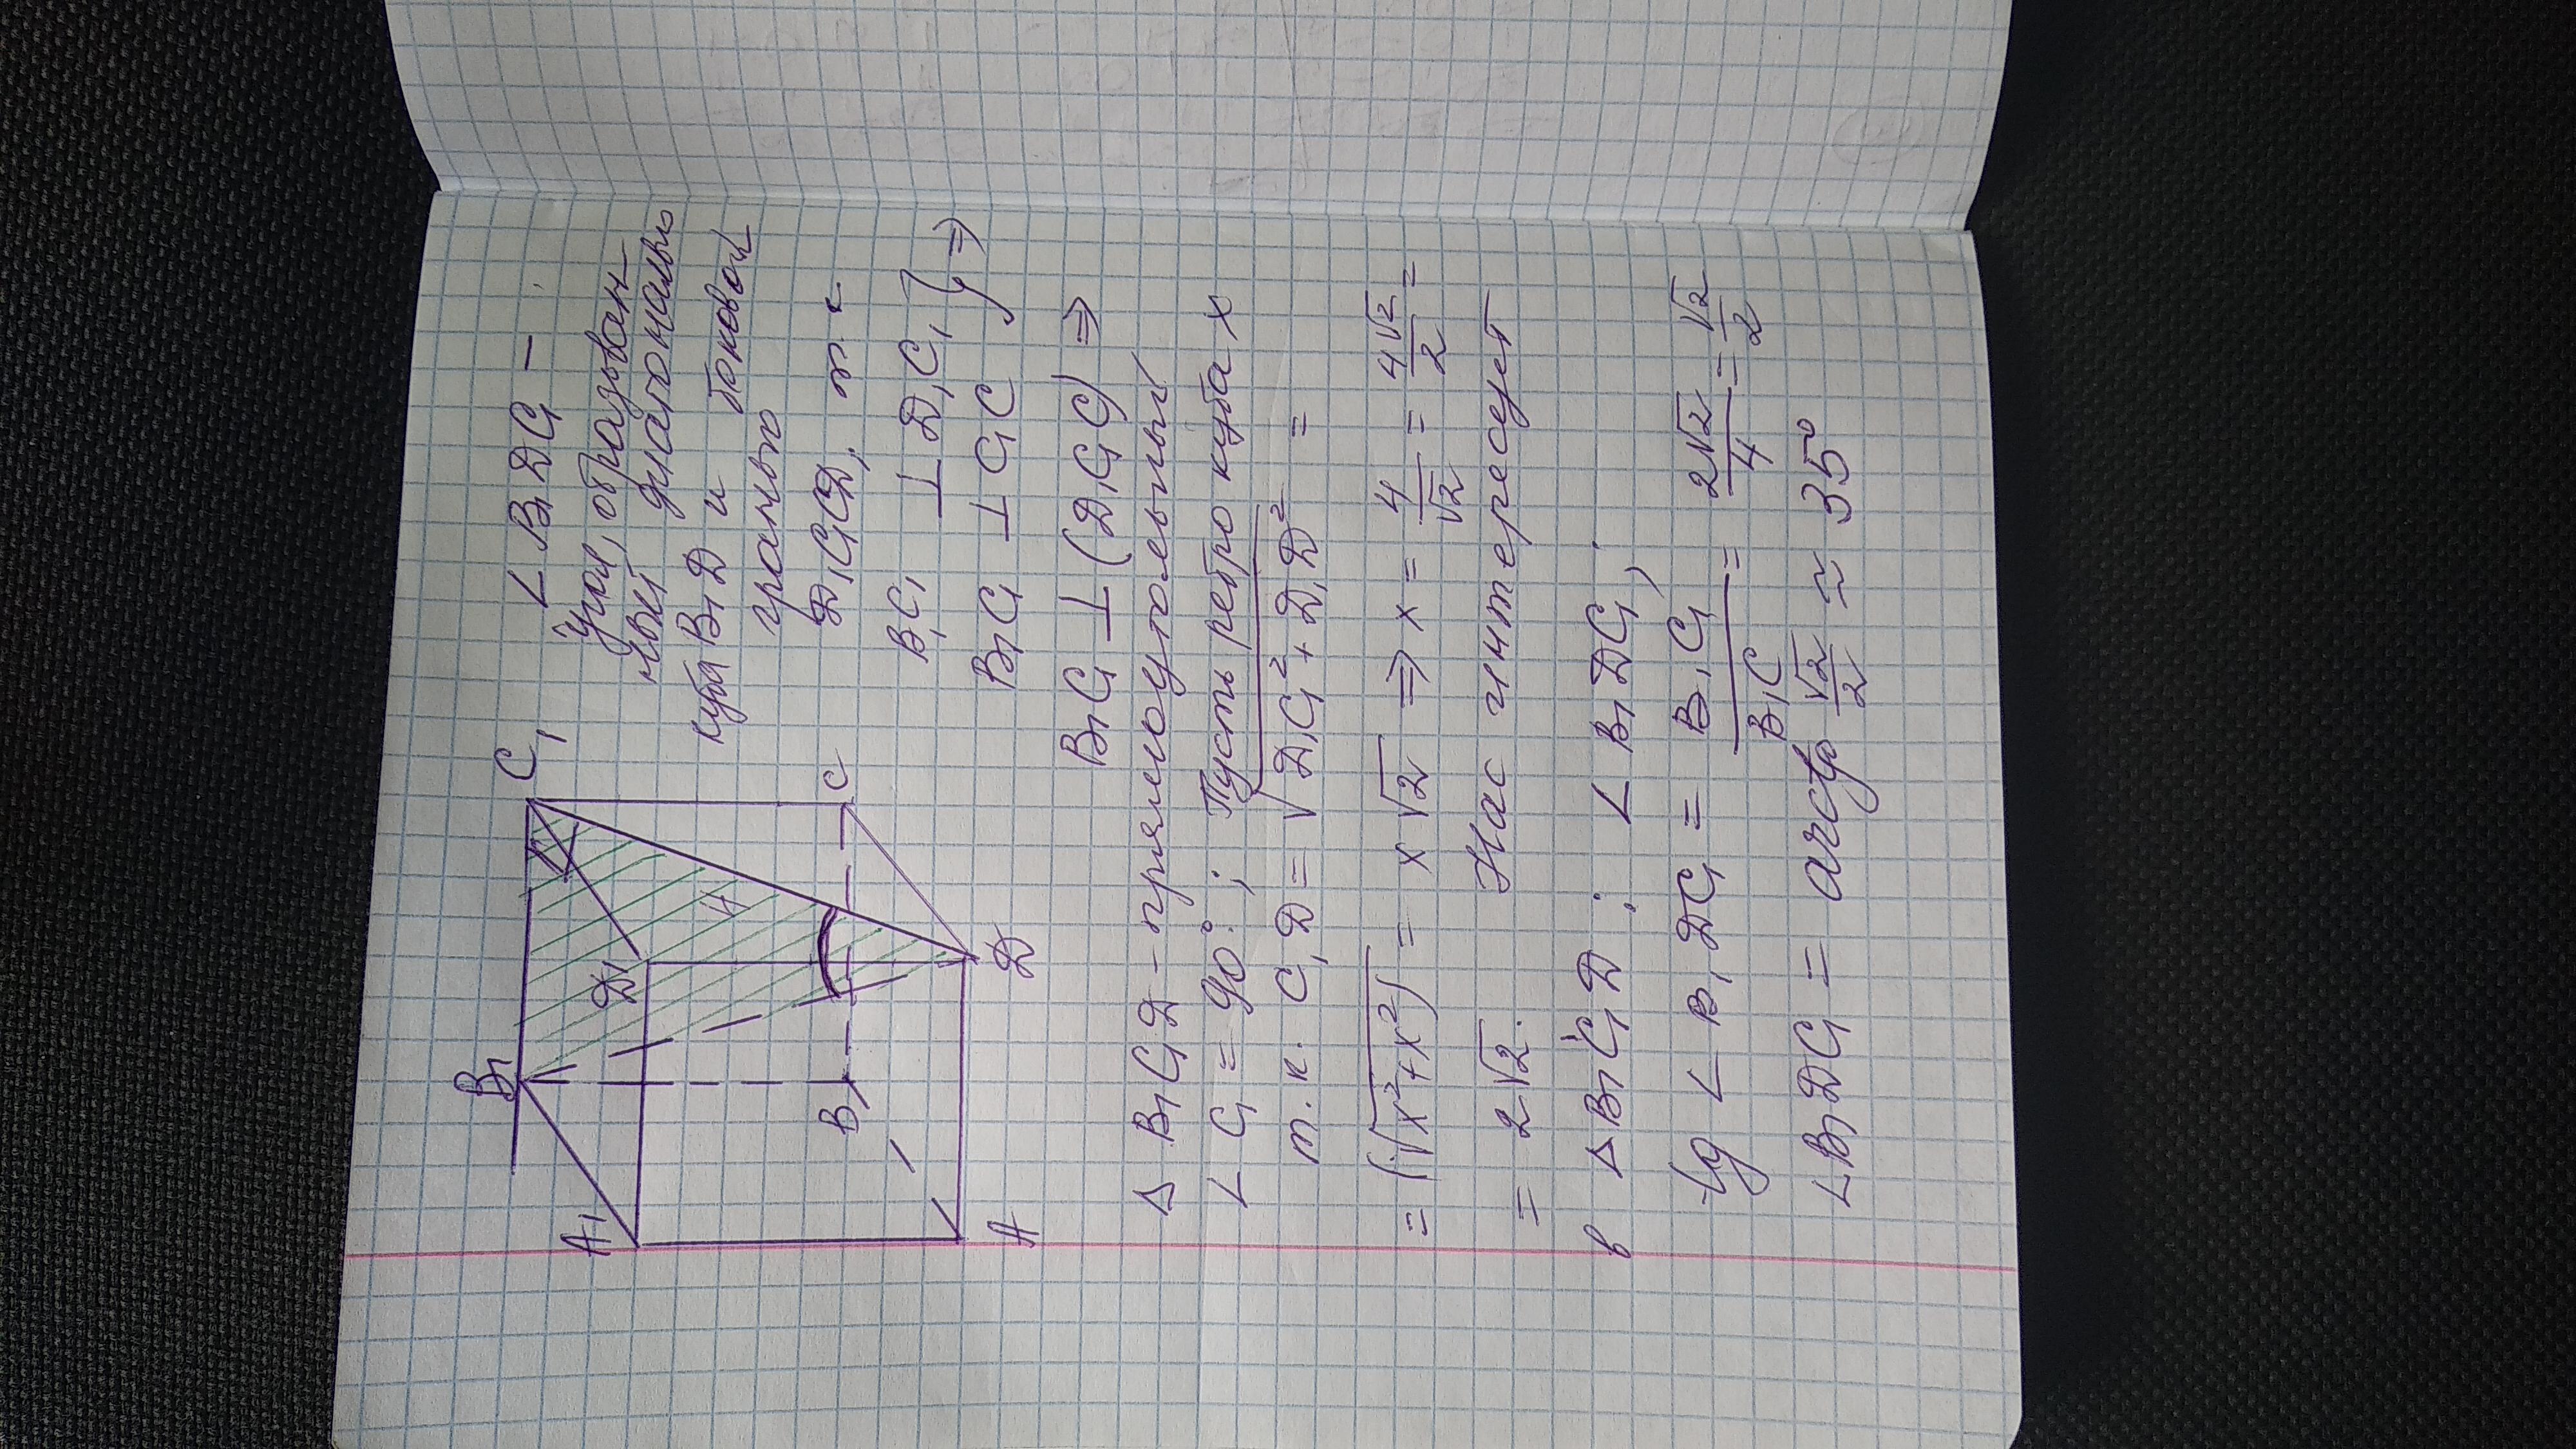 B₁ C₁
A₁ D₁
4
B C
A D
∠ B₁DC₁ –
угол, образован-
ный диагональю
куба B₁D и боковой
гранью
D₁C₁CD, т к
B₁C₁ ⊥ D₁C₁ } ⇒
B₁C₁ ⊥ C₁C
B₁C₁ ⊥ (D₁C₁C) ⇒
Δ B₁C₁D – прямоугольный
∠ C₁ = 90°; Пусть ребро куба x
т. к. C₁D = √(D₁C₁² + D₁D²) =
= √(x² + x²) = x√2 ⇒ x = 4/√2 = 4√2/2 =
= 2√2. Нас интересует
в Δ B₁C₁D: ∠ B₁DC₁;
tg ∠ B₁DC₁ = B₁C₁/B₁C = 2√2/4 = √2/2
∠B₁DC₁ = arctg √2/2 ≈ 35°